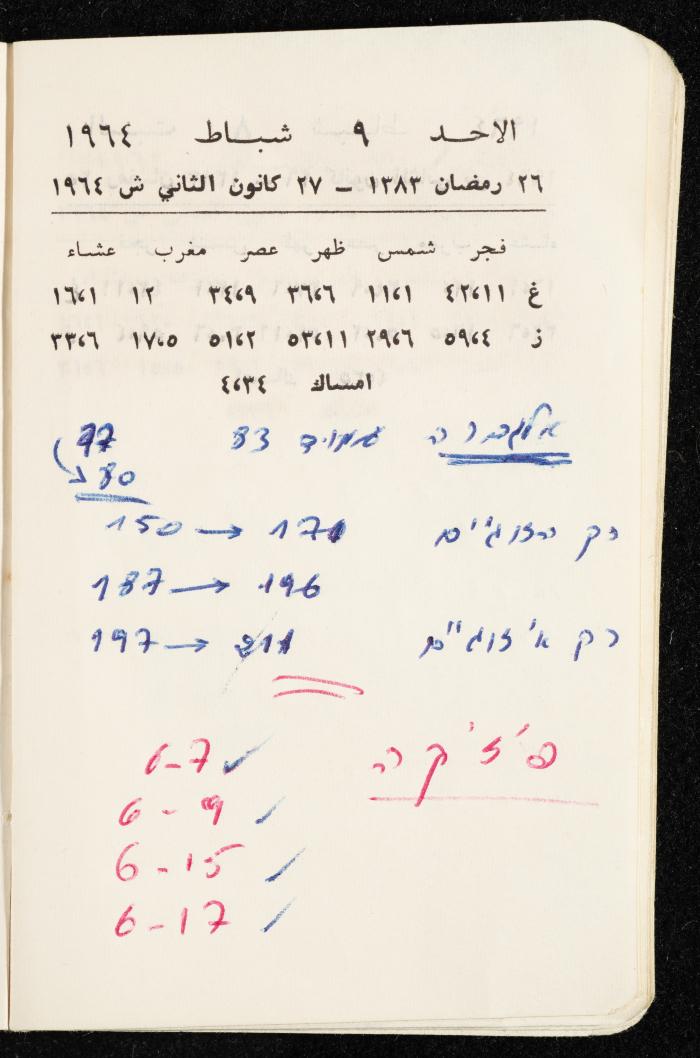 الاحد ٩ شباط ١٩٦٤
٢٦ رمضان ١٣٨٣ – ٢٧ كانون الثاني ش ١٩٦٤
فجر شمس ظهر عصر مغرب عشاء
غ ٤٢،١١ ١١،١ ٣٦،٦ ٣٤،٩ ١٢ ١٦،١
ز ٥٩،٤ ٢٩،٦ ٥٣،١١ ٥١،٢ ١٧،٥ ٣٣،٦
امساك ٤،٣٤
אלגברה עמוד 83 77
80
רק הזוגיים 150 → 171
187 → 196
רק אי זוגיים 197 → 211
פיזיקה
6-7 ✓
6-9 ✓
6-15 ✓
6-17 ✓